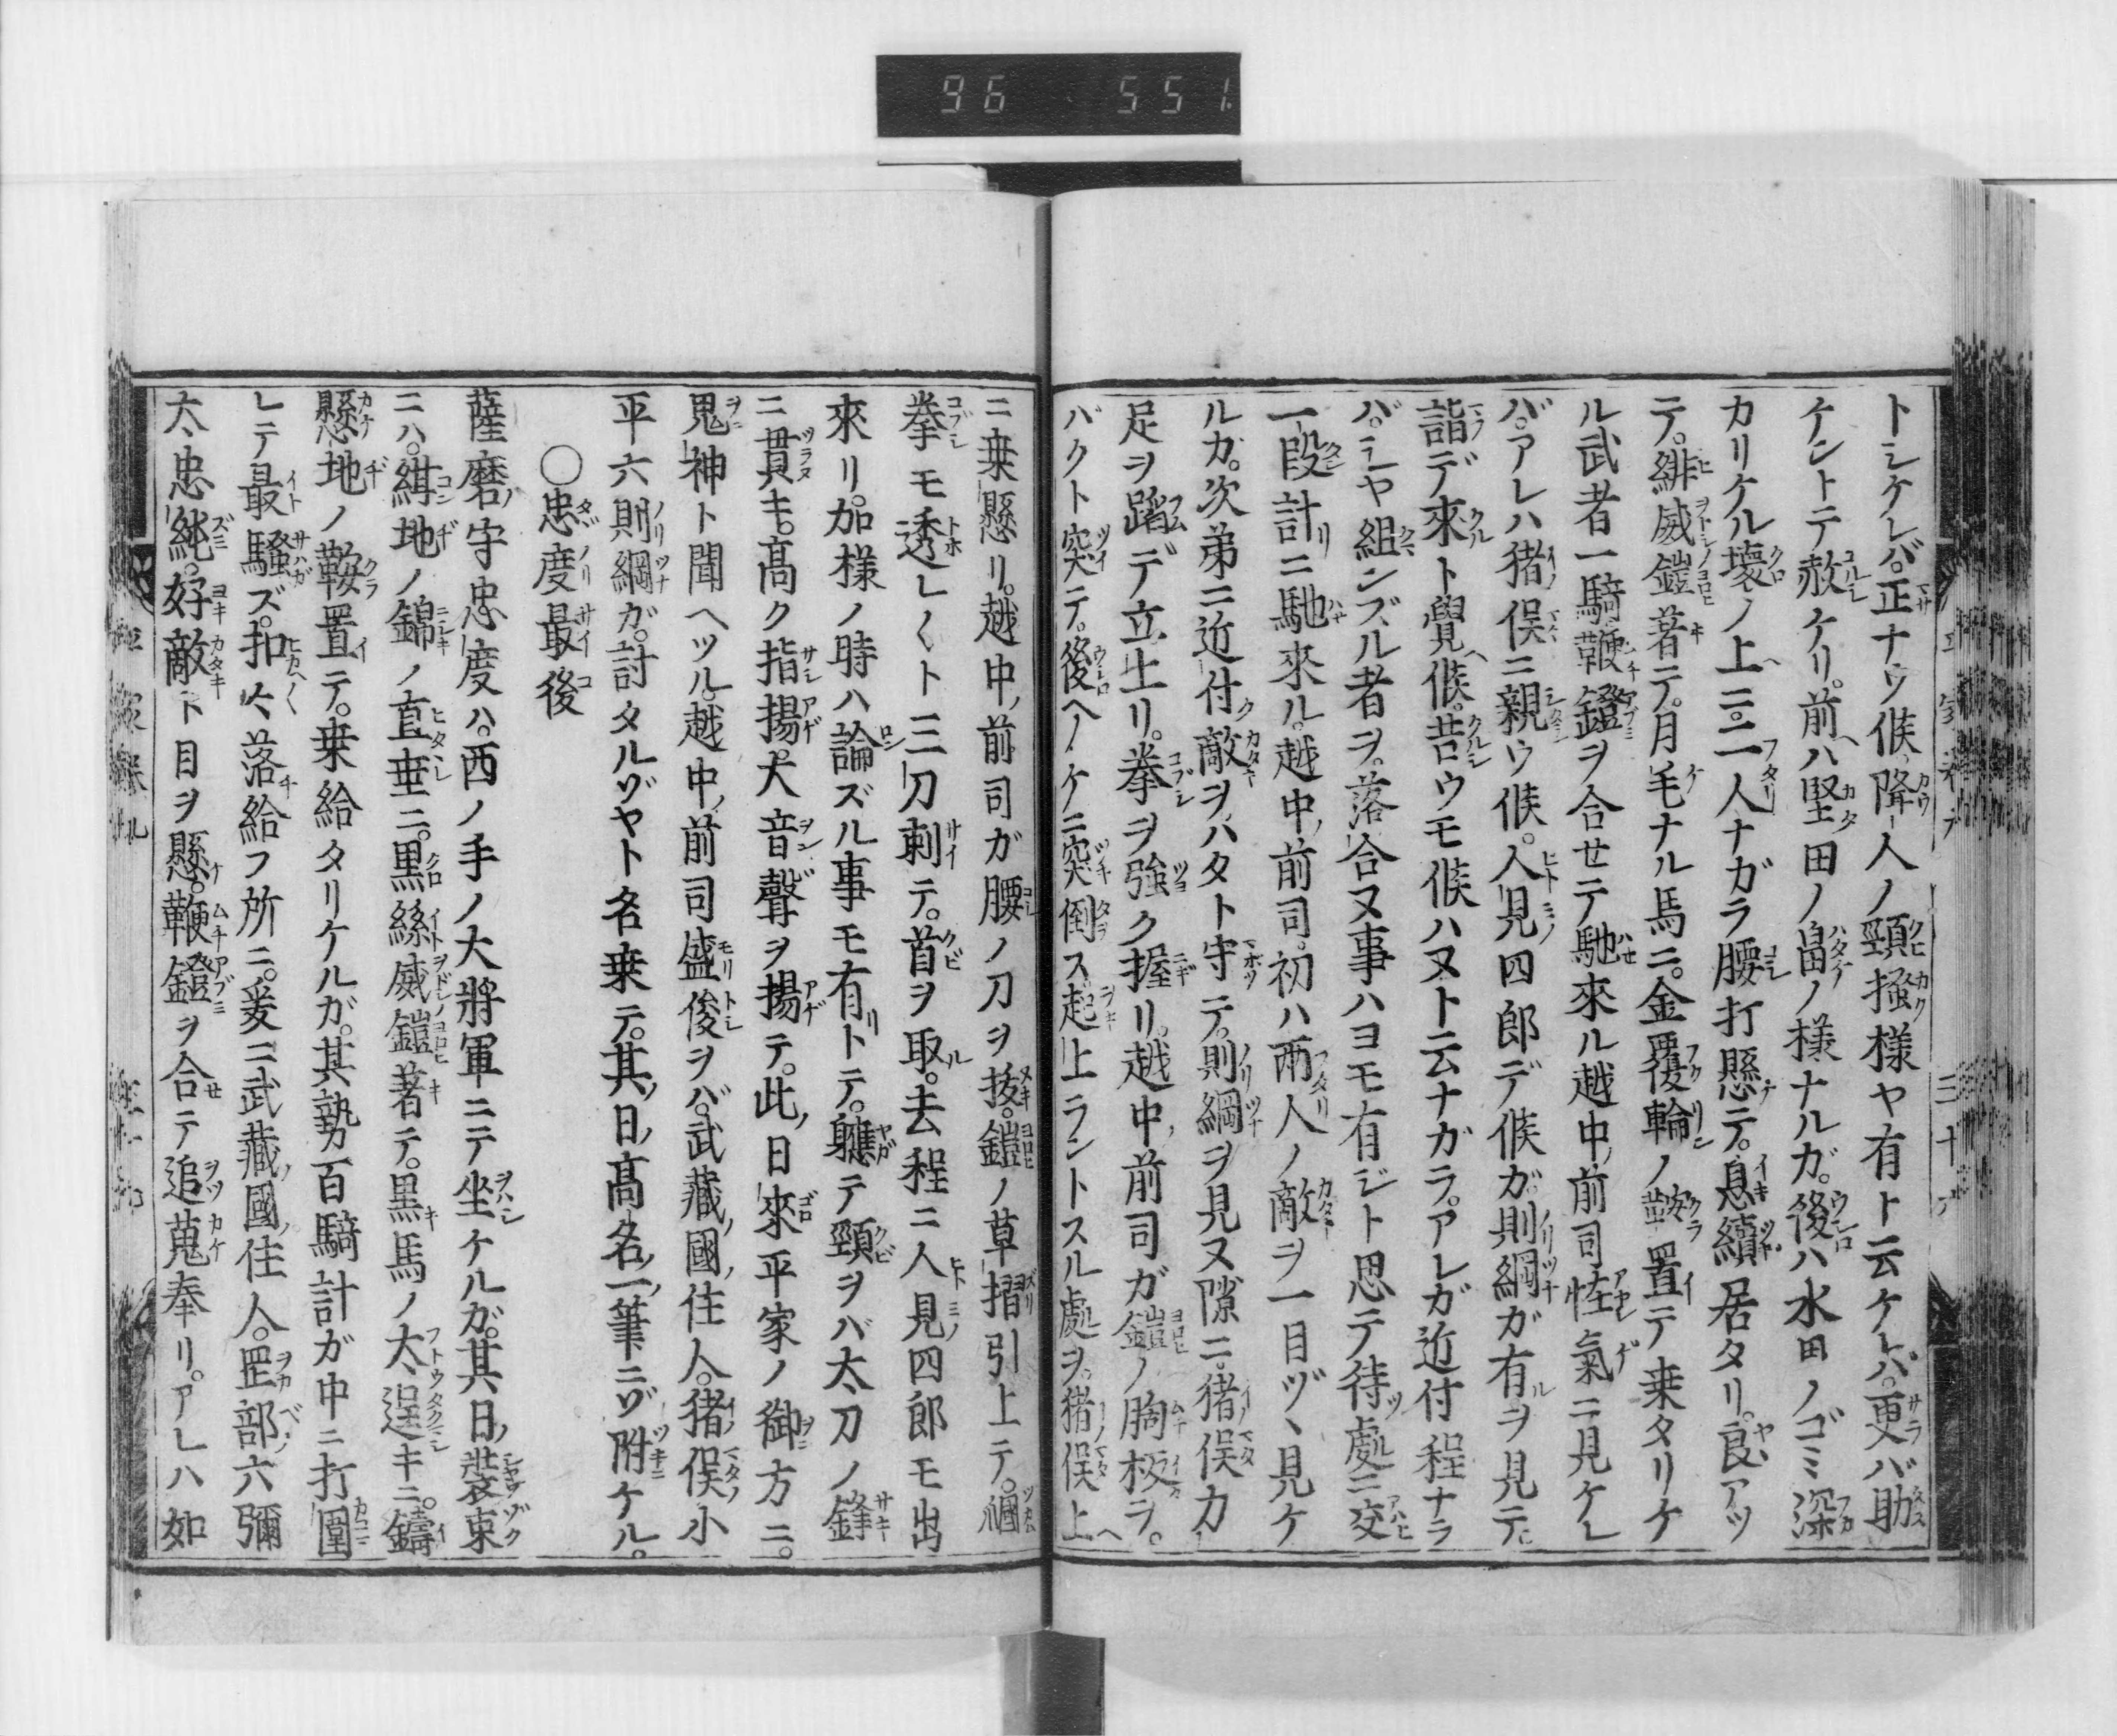 96 551.
トシケレバ。正ナウ候。降人ノ頸掻様ヤ有ト云ケレバ。更バ助
ケントテ赦ケリ。前ハ堅田ノ畠ノ様ナルガ。後ハ水田ノゴミ深
カリケル壊ノ上ニ。二人ナガラ腰打懸テ。息續居タリ。良アツ
テ。緋威鎧著テ。月毛ナル馬ニ。金覆輪ノ鞍置テ乗タリケ
ル武者一騎鞭鐙ヲ合セテ馳來ル越中前司恠氣ニ見ケレ
バ。アレハ猪俣ニ親ウ候。人見四郎デ候ガ。則綱ガ有ヲ見テ
詣デ來ト覺候。苦ウモ候ハヌト云ナガラ。アレガ近付程ナラ
バ。シヤ組ンズル者ヲ。落合ヌ事ハヨモ有ジト思テ待處ニ交
一段計ニ馳來ル。越中前司。初ハ兩人ノ敵ヲ一目ヅヽ見ケ
ルガ。次弟ニ近付敵ヲハタト守テ。則綱ヲ見ヌ隙ニ。猪俣力
足ヲ蹈デ立上リ。拳ヲ強ク握リ。越中前司ガ鎧ノ胸板ヲ。
バクト突テ。後ヘノケニ突倒ス。起上ラントスル處ヲ。猪俣上
ニ乗懸リ。越中前司ガ腰ノ刀ヲ抜。鎧ノ草摺引上テ。𣠽
拳モ透レ〳〵ト三刀刺テ。首ヲ取。去程ニ人見四郎モ出
來リ。加様ノ時ハ論ズル事モ有トテ。軈テ頸ヲバ太刀ノ鋒
ニ貫キ。髙ク指揚。大音聲ヲ揚テ。此日來平家ノ御方ニ。
鬼神ト聞ヘツル。越中前司盛俊ヲバ。武藏國ノ住人。猪俣小
平六則綱ガ。討タルゾヤト名乗テ。其日ノ髙名ノ一筆ニゾ附ケル。
〇忠度最後
薩磨守忠度ハ。西ノ手ノ大將軍ニテ坐ケルガ。其日ノ裝束
ニハ。紺地ノ錦ノ直垂ニ。黒絲威鎧著テ。黒キ馬ノ太逞キニ。鑄
懸地ノ鞍置テ。乗給タリケルガ。其勢百騎計ガ中ニ打圍
レテ最騒ズ。扣〳〵落給フ所ニ。爰ニ武藏國ノ住人。罡部六彌
太忠純。好敵ト目ヲ懸。鞭鐙ヲ合テ追蒐奉リ。アレハ如